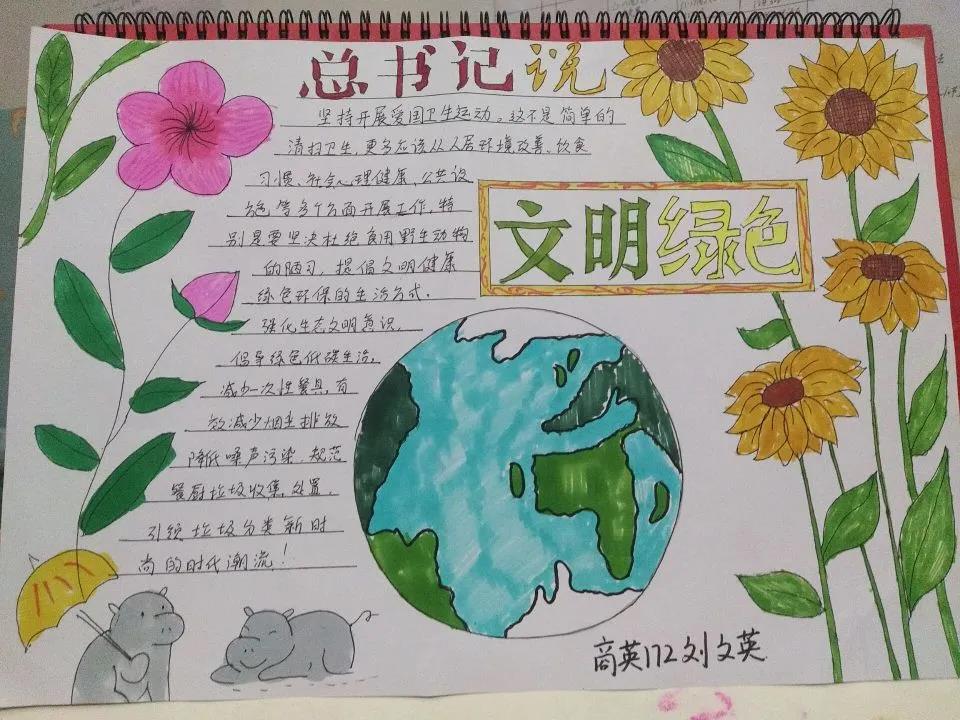 总书记说
坚持开展爱国卫生运动。这不是简单的
清扫卫生，更多应该从人居环境改善、饮食
习惯、社会心理健康、公共设
施等多个方面开展工作，特
别是要坚决杜绝食用野生动物
的陋习，提倡文明健康
绿色环保的生活方式.
强化生态文明意识，
倡导绿色低碳生活.
减少一次性餐具，有
效减少烟尘排放
降低噪声污染.规范
餐厨垃圾收集，处置.
引领垃圾分类新时
尚的时代潮流！
文明绿色
商英172刘文英